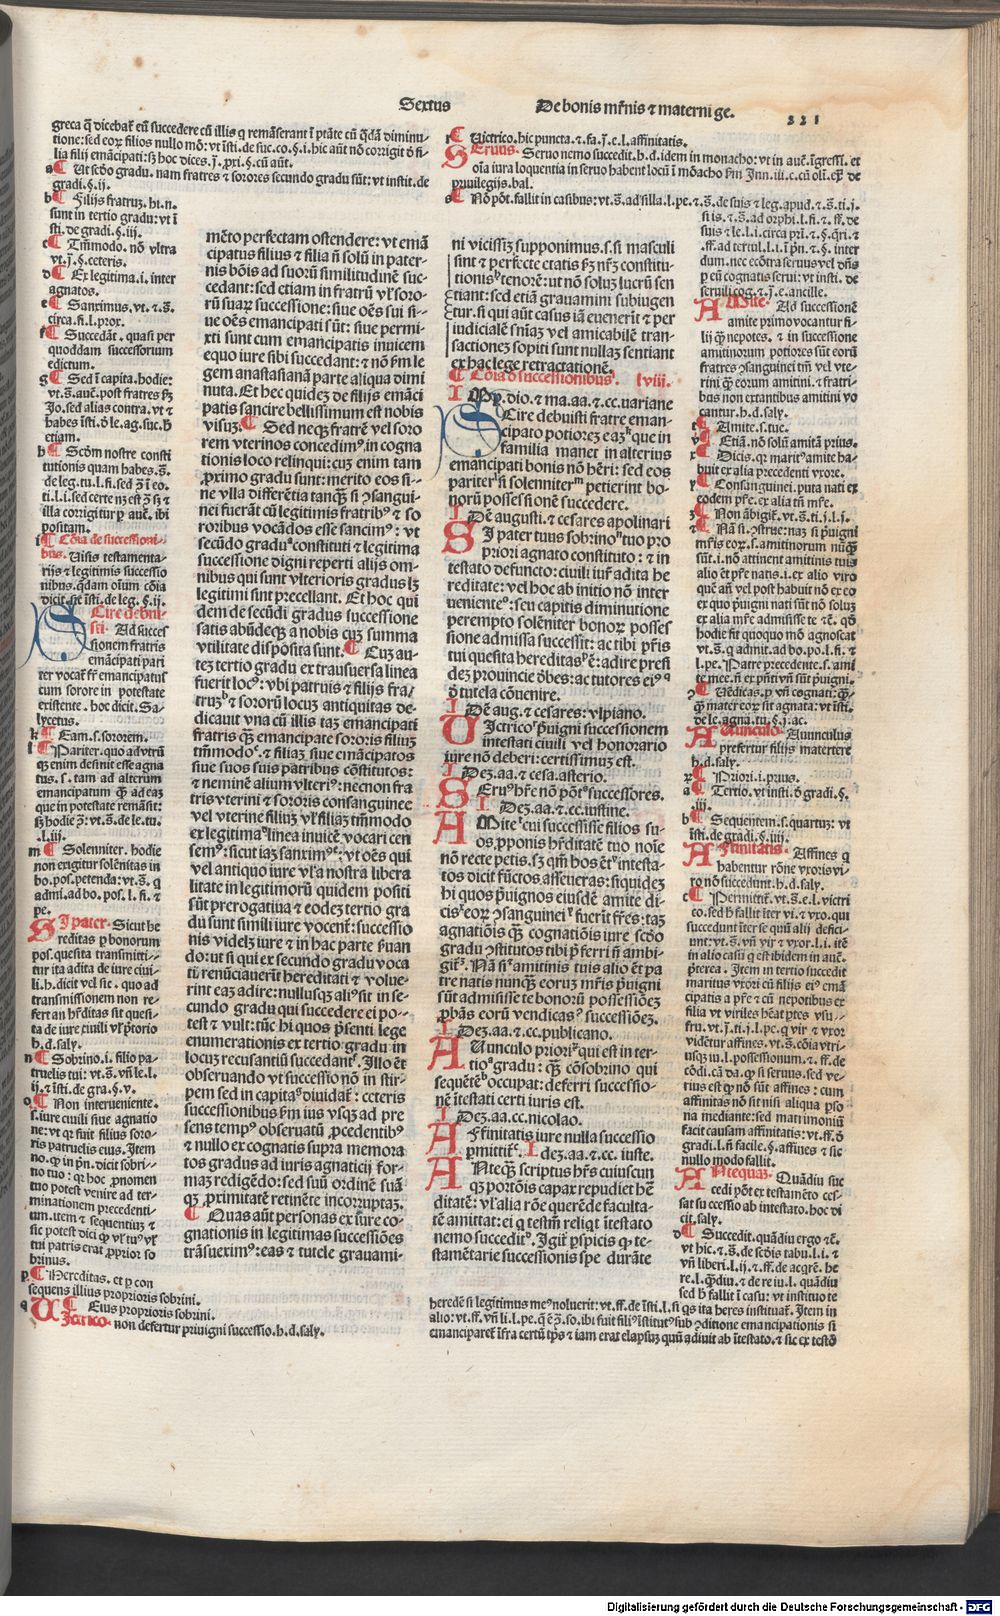 Sextus
De bonis mr̄nis ⁊ materni ge.
221
greca q̄ dicebat̄ eū succedere cū illis q remāserant ī ptāte cū q̄dā diminu-
tione: sed eoꝝ filios nullo mō: vt īsti. de suc. co. §. i. hic aūt nō corrigit ō fi-
lia filij emācipati: sꝫ hoc dices. j̄. ꝓxi. §. cū aūt.
a Ut scd̄o gradu. nam fratres ⁊ sorores secundo gradu sūt: vt instit. de
gradi. §. ij.
b Filijs fratruꝫ. hi. n.
sunt in tertio gradu: vt ī
sti. de gradi. §. iij.
c Tm̄modo. nō vltra
vt. j̄. §. ceteris.
d Ex legitima. i. inter
agnatos.
e Sanximus. vt. ⁊. s̄.
circa. fi. l. prox.
f Succedāt. quasi per
quoddam successorium
edictum.
g Sed ī capita. hodie:
vt. s̄. auē. post fratres sꝫ
Jo. sed alias contra. vt ⁊
habes īsti. ō le. ag. suc. h̄
etiam.
h Scd̄m nostre consti
tutionis quam habes. s̄.
de leg. tu. l. fi. sed ꝫ ī eo.
ti. l. i. sed certe nꝫ est ꝫ sꝫ ⁊
illa corrigitur ꝑ auē. ibi
positam.
i Cōia de successioni-
bus. Uisis testamenta-
rijs ⁊ legitimis successio
nibus. q̄dam oīum cōia
dicit. sic īsti. de leg. §. ij.
Scire debui-
sti. Ad succes
sionem fratris
emācipati pari
ter vocat̄ fr̄ emācipatus
cum sorore in potestate
existente. hoc dicit. Sa-
lycetus.
k Eam. s. sororem.
l Pariter. quo ad vtrū
qꝫ enim desinit esse agna
tus. s. tam ad alterum
emancipatum qꝫ ad eaꝫ
que in potestate remāsit:
sꝫ hodie ꝫ: vt. s̄. de le. tu.
l. iii.
m Solenniter. hodie
non exigitur solēnitas in
bo. pos. petenda: vt. s̄. q
admi. ad bo. pos. l. fi. ⁊
pe.
Si pater. Sicut he
reditas ꝑ bonorum
pos. quesita transmitti-
tur ita adita de iure ciui-
li. h. dicit vel sic. quo ad
transmissionem non re-
fert an hr̄ditas sit quesi-
ta de iure ciuili vl̓ p̄torio
h. d. saly.
n Sobrino. i. filio pa-
truelis tui: vt. s̄. vn̄ le. l.
ij. ⁊ īsti. de gra. §. v.
o Non interueniente.
s. iure ciuili siue agnatio
ne: vt qꝛ fuit filius soro-
ris patruelis eius. Item
no. ꝙ in p̄n. dicit sobri-
no tuo: qꝛ hoc ꝓnomen
tuo potest venire ad ter-
minationem precedenti-
um. item ⁊ sequentiuꝫ ⁊
sic potest dici ꝙ vl̓ tu⁹ vl̓
tui patris erat ꝓprior so
brinus.
p Hereditas. et ꝑ con
sequens illius proprioris sobrini.
q Eius proprioris sobrini.
Uictrico. non defertur priuigni successio. h. d. saly.
mēto perfectam ostendere: vt emā
cipatus filius ⁊ filia nō solū in pater-
nis bōis ad suorū similitudinē suc-
cedant: sed etiam in fratrū vl̓ soro-
rū suarꝫ successione: siue oēs sui si-
ue oēs emancipati sūt: siue permi-
xti sunt cum emancipatis inuicem
equo iure sibi succedant: ⁊ nō ẜm le
gem anastasianā parte aliqua dimi
nuta. Et hec quideꝫ de filijs emāci
patis sancire bellissimum est nobis
visuꝫ. Sed neqꝫ fratrē vel soro
rem vterinos concedim⁹ in cogna
tionis loco relinqui: cuꝫ enim tam
ꝓximo gradu sunt: merito eos si-
ne vlla differētia tanqꝫ si ꝯsangui-
nei fuerāt cū legitimis fratrib⁹ ⁊ so
roribus vocādos esse sancim⁹: vt
secūdo graduᵃ constituti ⁊ legitima
successione digni reperti alijs om-
nibus qui sunt vlterioris gradus lꝫ
legitimi sunt precellant. Et hoc qui
dem de secūdi gradus successione
satis abūdeqꝫ a nobis cuꝫ summa
vtilitate disposita sunt. Cuꝫ au-
teꝫ tertio gradu ex transuersa linea
fuerit loc⁹: vbi patruis ⁊ filijs fra-
truꝫᵇ ⁊ sororū locuꝫ antiquitas de-
dicauit vna cū illis taꝫ emancipati
fratris qꝫ emancipate sororis filiuꝫ
tm̄modoᶜ. ⁊ filiaꝫ siue emācipatos
siue suos suis patribus cōstitutos:
⁊ neminē alium vlteri⁹: necnon fra
tris vterini ⁊ sororis consanguinee
vel vterine filiuꝫ vl̓ filiaꝫ tm̄modo
ex legitimaᵈ linea inuicē vocari cen
sem⁹: sicut iaꝫ sanxim⁹ᵉ: vt oēs qui
vel antiquo iure vl̓ a nostra libera
litate in legitimorū quidem positi
sūt prerogatiua ⁊ eodeꝫ tertio gra
du sunt simili iure vocent̄: successio
nis videlꝫ iure ⁊ in hac parte ẜuan
do: vt si qui ex secundo gradu voca
ti renūciauerīt hereditati ⁊ volue-
rint eaꝫ adire: nullusqꝫ ali⁹ sit in se-
cundo gradu qui succedere ei po-
test ⁊ vult: tūc hi quos p̄senti lege
enumerationis ex tertio gradu in
locuꝫ recusantiū succedantᶠ. Illo ēt
obseruando vt successio nō in stir-
pem sed in capitaᵍ diuidat̄: ceteris
successionibus ẜm ius vsqꝫ ad pre
sens temp⁹ obseruatū ꝓcedentibʰ
⁊ nullo ex cognatis supra memora
tos gradus ad iuris agnaticij for-
maꝫ redigēdo: sed suū ordinē suā
qꝫ ꝓximitatē retinēte incorruptaꝫ.
Quas aūt personas ex iure co-
gnationis in legitimas successiōes
trāsuexim⁹: eas ⁊ tutele grauami-
ni vicissiꝫ supponimus. s. si masculi
sint ⁊ perfecte etatis sꝫ nr̄m constitu-
tionisʰ tenorē: ut nō soluꝫ lucrū sen
tiant: sed etiā grauamini subiugen
tur. si qui aūt casus iā euenerīt ⁊ per
iudicialē sn̄iaꝫ vel amicabilē tran-
sactioneꝫ sopiti sunt nullaꝫ sentiant
ex hac lege retractationē.
Cōia ō successionibusⁱ. lviii.
Imp̄. dio. ⁊ ma. aa. ⁊. cc. variane
Scire debuisti fratre eman-
cipato potioreꝫ eaꝫᵏ que in
familia manet in alterius
emancipati bonis nō hr̄i: sed eos
pariterˡ si solenniterᵐ petierint bo-
norū possessionē succedere.
Idē augusti. ⁊ cesares apolinari
Si pater tuus sobrinoⁿ tuo pro
priori agnato constituto: ⁊ in
testato defuncto: ciuili iur̄ adita he
reditate: vel hoc ab initio nō inter
uenienteᵒ: seu capitis diminutione
perempto solēniter bonoꝝ posses
sione admissa successit: ac tibi pr̄is
tui quesita hereditasᵖ ē: adire presi
deꝫ prouincie ōbes: ac tutores ei⁹ q
ō tutela cōuenire.
Idē aug. ⁊ cesares: vlpiano.
Uictricoʳ p̄uigni successionem
intestati ciuili vel honorario
iure nō deberi: certissimuꝫ est.
Ideꝫ. aa. ⁊ cesa. asterio.
Seru⁹ hr̄e nō pōtˢ successōres.
Ideꝫ. aa. ⁊. cc. iustine.
Amiteᵗ cui successisse filios su-
os ꝓponis hr̄ditatē tuo noīe
nō recte petis. sꝫ qm̄ hos ēt̄ intesta-
tos dicit fūctos asseueras: siquideꝫ
hi quos p̄uignos eiusdē amite di-
cis eoꝝ ꝯsanguinei fuerīt fr̄es: taꝫ
agnatiōis qꝫ cognatiōis iure scd̄o
gradu ꝯstitutos tibi p̄ferri nō ambi-
git̄. Nā si amitinis tuis alio ēt pa
tre natis nunqꝫ eoruꝫ mr̄is p̄uigni
sūt admisisse te bonorū possessiōeꝫ
ꝓbās eorū vendicas successiōeꝫ.
Ideꝫ. aa. ⁊ cc. publicano.
Auunculo priorix qui est in ter-
tioᵃ gradu: qꝫ cōsobrino qui
sequētēᵇ occupat: deferri successio-
nē ītestati certi iuris est.
Ideꝫ. aa. cc. nicolao.
Affinitatis iure nulla successio
ꝑmittit̄ᶜ. I deꝫ. aa. ⁊ cc. iuste.
Anteqꝫ scriptus hr̄s cuiuscun
qꝫ portōis capax repudiet hē
ditatē: vl̓ alia rōe querēde faculta-
tē amittat: ei q testm̄ reliqt ītestato
nemo succeditᵈ. Igit̄ ꝓspicis ꝙ te-
stamētarie successionis spe durāte
r Uictrico. hic puncta. ⁊. fa. j̄. e. l. affinitatis.
Seruus. Seruo nemo succedit. h. d. idem in monacho: vt in auē. īgressi. et
oīa iura loquentia in seruo habent locū ī mōacho ẜm Inn. iii. c. cū oli. ex̄ de
priuilegijs. bal.
s Nō pōt. fallit in casibus: vt. s̄. ad silla. l. pe. ⁊. s̄. de suis ⁊ leg. apud. ⁊. s̄. ti. j.
si is. ⁊. s̄. ad orphi. l. fi. ⁊ ff. de
suis ⁊ le. l. i. circa pn̄. ⁊ §. q̄ri. ⁊
ff. ad tertul. l. i. ī p̄n. ⁊ §. inter
dum. nec ecōtra seruus vel dn̄s
ꝑ eū cognatis serui: vt insti. de
seruili cog. ⁊ j̄. e. ancille.
Amite. Ad successionē
amite primo vocantur fi-
lij qꝫ nepotes. ⁊ in successione
amitinorum potiores sūt eorū
fratres ꝯsanguinei tm̄ vel vte-
rini qꝫ eorum amitini. ⁊ fratri-
bus non extantibus amitini vo
cantur. h. d. saly.
t Amite. s. tue.
v Etiā. nō solū amitā prius.
x Dicis. qꝛ marit⁹ amite ha-
buit ex alia precedenti vxore.
y Consanguinei. puta nati ex
eodem pr̄e. ex alia tn̄ mr̄e.
z Non ābigit̄. vt. s̄. ti. j. l. j.
⁊ Nā si. ꝯstrue: naꝫ si p̄uigni
mr̄is eoꝝ. s. amitinorum nūqꝫ
sūt. i. nō attinent amitinis tuis
alio ēt pr̄e natis. i. ex alio viro
quē an̄ vel post habuit nō ex eo
ex quo p̄uigni nati sūt nō soluꝫ
ex alia mr̄e admisisse te ⁊c̄. qd̄
hodie fit quoquo mō agnoscat
vt. s̄. q admit. ad bo. po. l. fi. ⁊
l. pe. Patre precedente. s. ami
te mee. n̄ ex p̄nti vn̄ sūt p̄uigni.
? Uēdicas. ꝑ vn̄ cognati: qꝛ
ꝙ mater eoꝝ sit agnata: vt īsti.
de le. agna. tu. §. j. ac.
Auunculo. Auunculus
prefertur filijs matertere
h. d. saly.
z Priori. i. prius.
a Tertio. vt insti. ō gradi. §.
iii.
b Sequentem. s. quartuꝫ: vt
īsti. de gradi. §. iiij.
Affinitatis. Affines q
habentur rōne vxoris vi-
to nō succedunt. h. d. saly.
c Permittit̄. vt. s̄. e. l. victri
co. sed h̄ fallit īter vi. ⁊ vxo. qui
succedunt īter se qn̄ alij defici-
unt: vt. s̄. vn̄ vir ⁊ vxor. l. i. itē
in alio casu q est ibidem in auē.
p̄terea. Item in tertio succedit
maritus vxori cū filijs ei⁹ emā
cipatis a pr̄e ⁊ cū nepotibus ex
filia vt viriles hēat p̄tes vsu-
fru. vt. j̄. ti. j. l. pe. q vir ⁊ vxor
vidētur affines. vt. s̄. cōia vtri-
usqꝫ iu. l. possessionum. ⁊. ff. de
cōdi. cā da. ꝙ si seruus. sed ve-
rius est ꝙ nō sūt affines: cum
affinitas nō sit nisi aliqua ꝑso
na mediante: sed matrimoniū
facit causam affinitatis: vt. ff. ō
gradi. l. n̄ facile. §. affines ⁊ sic
nullo modo fallit.
Antequaꝫ. Quādiu suc
cedi pōt ex testamēto ces-
sat successio ab intestato. hoc di
cit. saly.
d Succedit. quādiu ergo ⁊c̄.
vt hic. ⁊. s̄. de secd̄is tabu. l. i. ⁊
vn̄ liberi. l. ij. ⁊. ff. de acqre̅. he
re. l. qꝫdiu. ⁊ de re iu. l. quādiu
sed h̄ fallit ī casu: vt instituo te
heredē si legitimus me⁹ noluerit: vt. ff. de īsti. l. si qs ita heres instituat̄. Item in
alio: vt. ff. vn̄ li. l. pe. q̄ ē ꝫ. so. ibi fuit fili⁹ īstitut⁹ sub ꝯditione emancipationis si
emanciparet̄ īfra certū tp̄s ⁊ iam erat elapsuꝫ quū adiuit ab ītestato. ⁊ sic ex testō
Digitalisierung gefördert durch die Deutsche Forschungsgemeinschaft - DFG